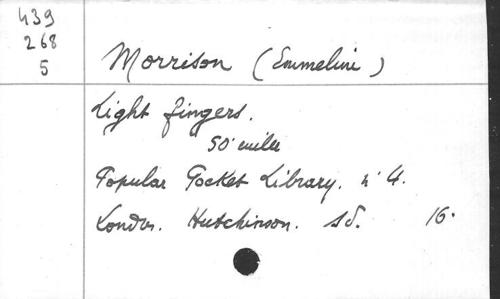 439
268
5
Morrison (Emmeline)
Light fingers.
50' miller
Popular Pocket Library. n° 4.
London. Hutchinson. sd. 16.